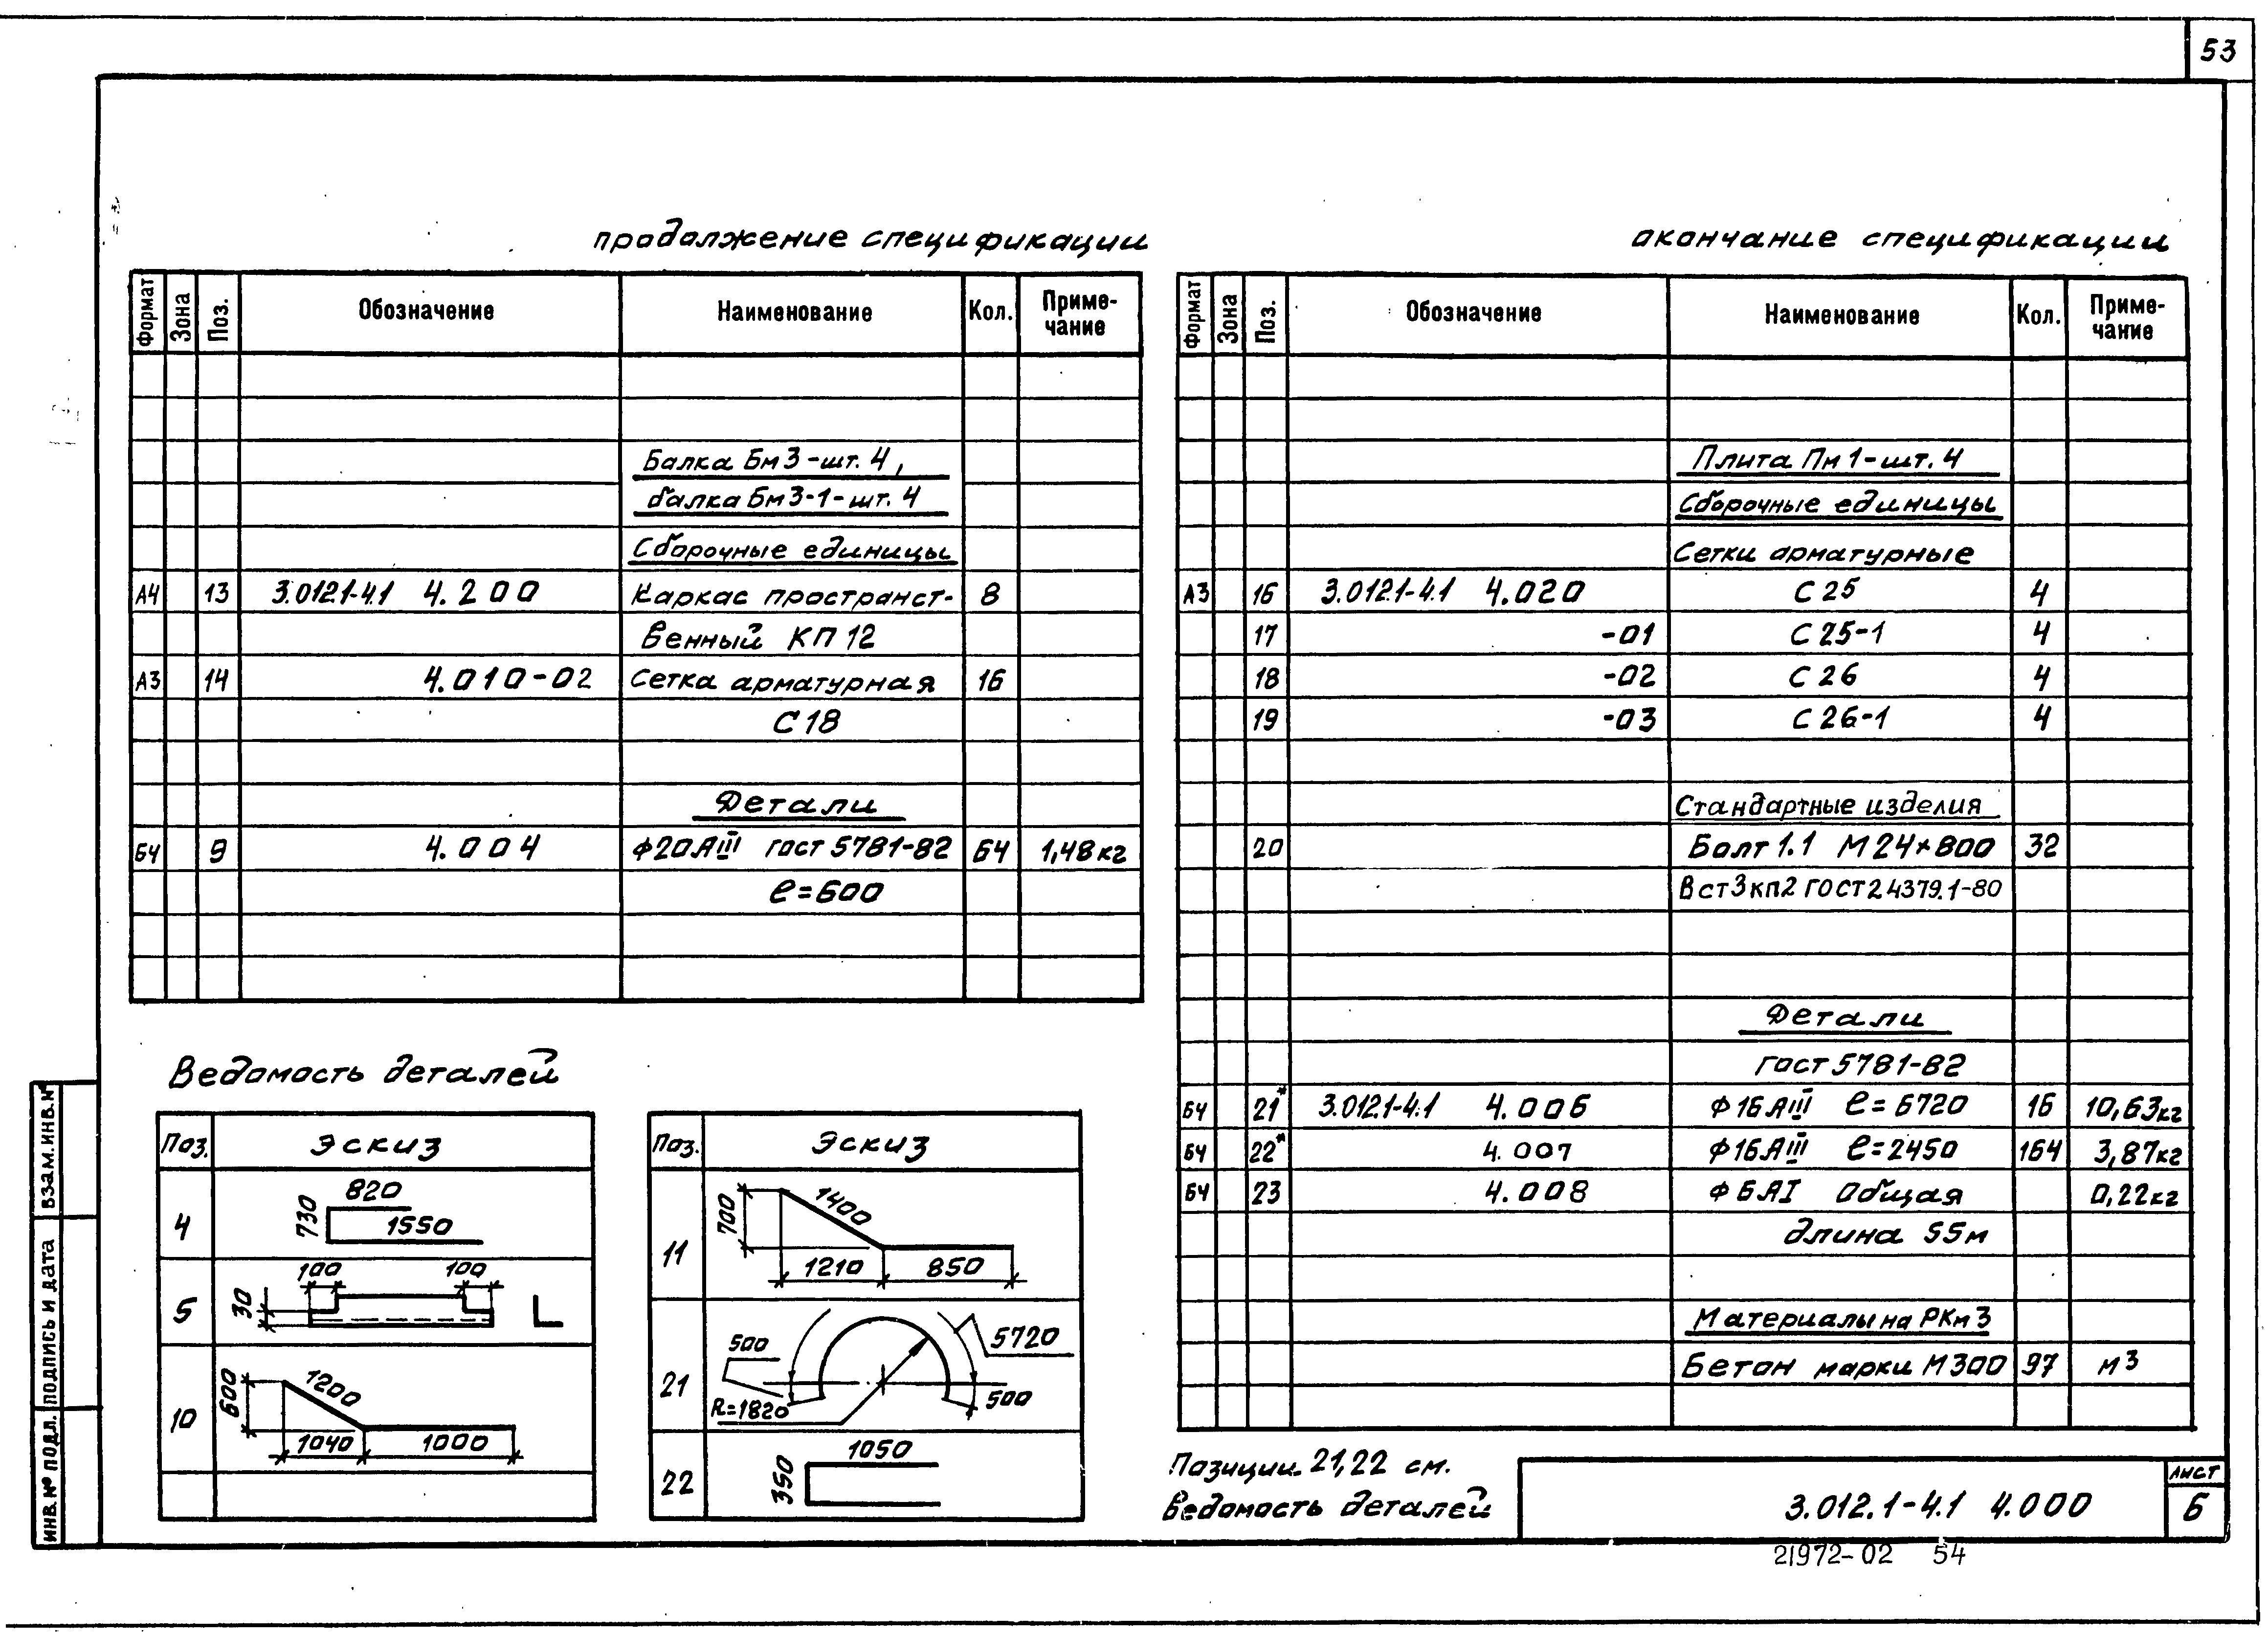 53
продолжение спецификации
Формат Зона Поз. Обозначение Наименование Кол. Приме-
чание
Балка Бм3-шт. 4,
балка Бм3-1-шт. 4
Сборочные единицы
А4 13 3.012.1-4.1 4.200 Каркас пространст- 8
венный КП 12
А3 14 4.010-02 Сетка арматурная 16
С 18
Детали
БЧ 9 4.004 Ф20АIII гост 5781-82 64 1,48кг
ℓ=600
окончание спецификации
Формат Зона Поз. Обозначение Наименование Кол. Приме-
чание
Плита Пм 1-шт. 4
Сборочные единицы
Сетки арматурные
А3 16 3.012.1-4.1 4.020 С 25 4
17 -01 С 25-1 4
18 -02 С 26 4
19 -03 С 26-1 4
Стандартные изделия
20 Болт 1.1 М24×800 32
Вст3кп2 ГОСТ 24379.1-80
Детали
гост 5781-82
БЧ 21* 3.012.1-4.1 4.006 Ф16АIII ℓ=6720 16 10,63кг
БЧ 22* 4.007 Ф16АIII ℓ=2450 164 3,87кг
БЧ 23 4.008 Ф6АI Общая 0,22кг
длина 55м
Материалы на РКм3
Бетон марки М300 97 м3
Ведомость деталей
Поз. Эскиз
4 820 730 1550
5 100 100 30
10 600 1200 1040 1000
Поз. Эскиз
11 700 1400 1210 850
21 500 5720 R=1820 500
22 1050 350
Позиции 21,22 см.
Ведомость деталей
3.012.1-4.1 4.000
Лист
6
21972-02 54
ИНВ.№ ПОДЛ. ПОДПИСЬ И ДАТА ВЗАМ.ИНВ.№